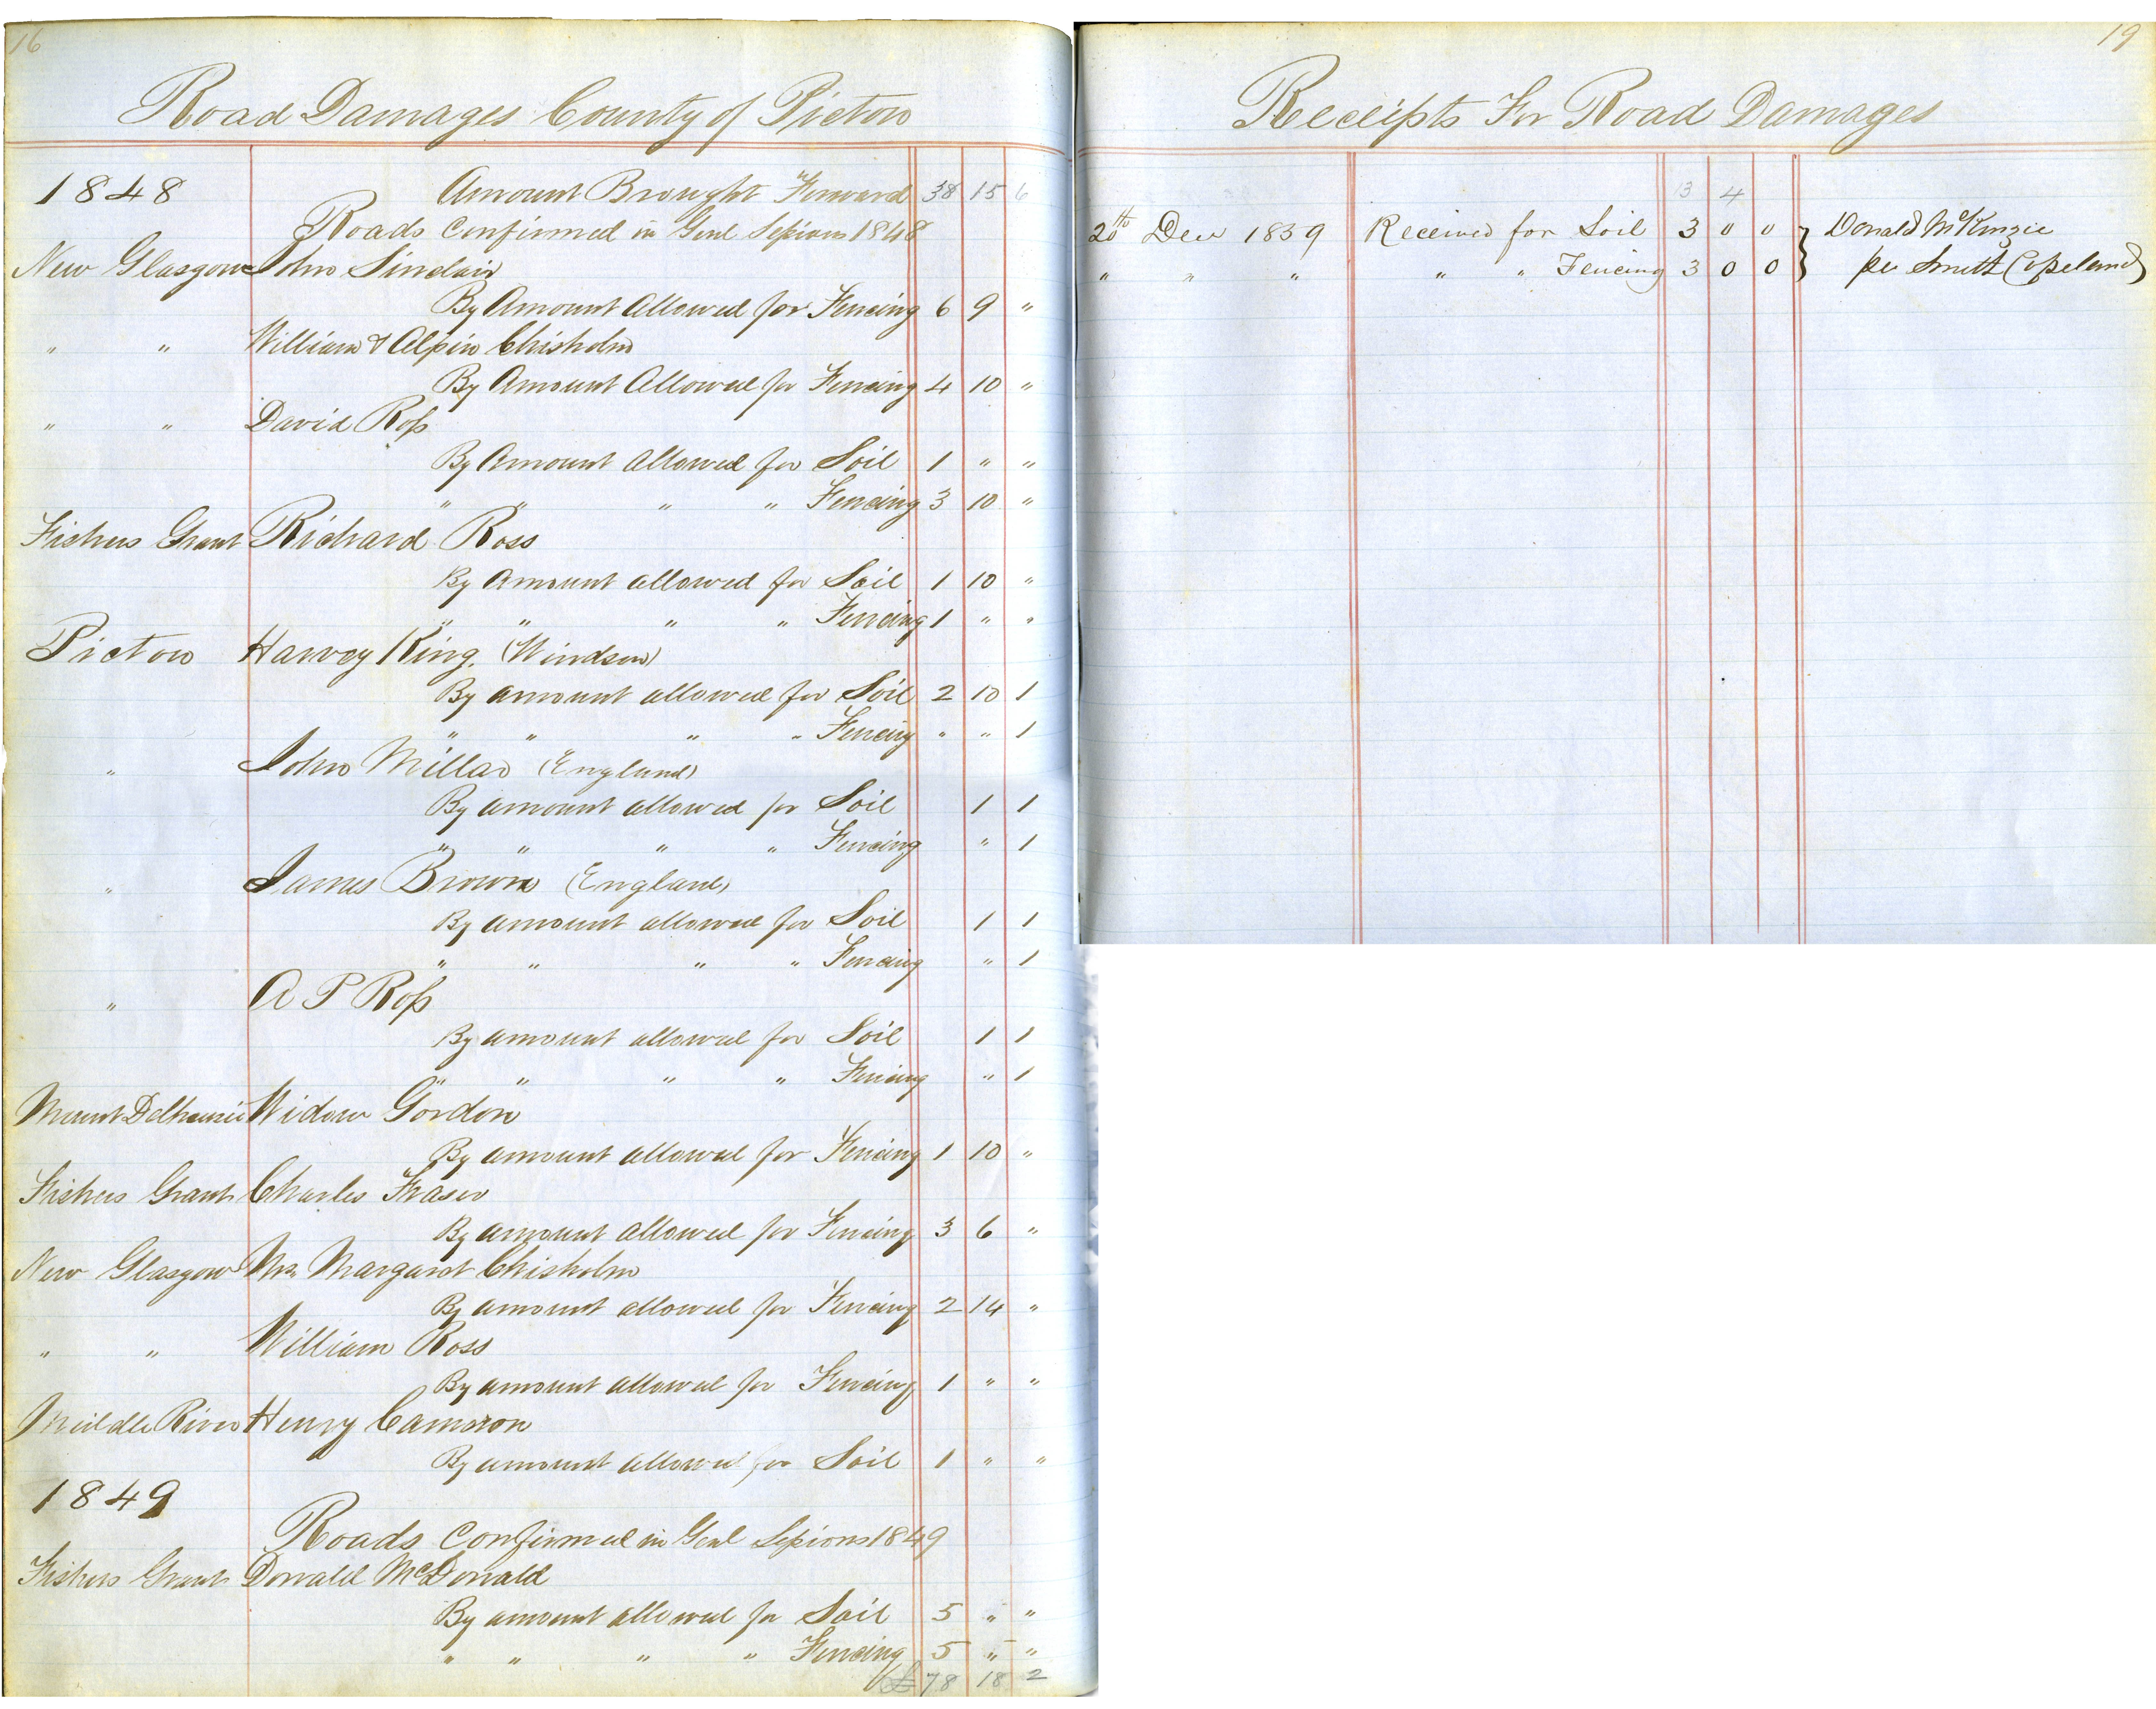 16
Road Damages County of Pictou
1848 Amount Brought Forward 38 15 6
Roads Confirmed in Genl Seßions 1848
New Glasgow John Sinclair
By Amount Allowed for Fencing 6 9 "
" " William & Alpin Chisholm
By Amount Allowed for Fencing 4 10 "
" " David Roß
By Amount Allowed for Soil 1 " "
" " " " Fencing 3 10 "
Fishers Grant Richard Ross
By Amount allowed for Soil 1 10 "
" " " " Fencing 1 " "
Pictou Harvey King. (Windsor)
By amount allowed for Soil 2 10 1
" " " " Fencing " " 1
" John Millar (England)
By amount allowed for Soil 1 1
" " " " Fencing " 1
" James Brown (England)
By amount allowed for Soil 1 1
" " " " Fencing " 1
" A P Roß
By amount allowed for Soil 1 1
" " " " Fencing " 1
Mount Dalhousie Widow Gordon
By amount allowed for Fencing 1 10 "
Fishers Grant Charles Fraser
By amount allowed for Fencing 3 6 "
New Glasgow Mrs Margaret Chisholm
By amount allowed for Fencing 2 14 "
" " William Ross
By amount allowed for Fencing 1 " "
Middle River Henry Cameron
By amount allowed for Soil 1 " "
1849
Roads Confirmed in Genl Seßions 1849
Fishers Grant Donald McDonald
By amount allowed for Soil 5 " "
" " " " Fencing 5 " "
£ 78 18 2
19
Receipts For Road Damages
13 4
20th Decr 1839 Received for Soil 3 0 0 } Donald McKenzie
" " " " " Fencing 3 0 0 } per Smith Copeland